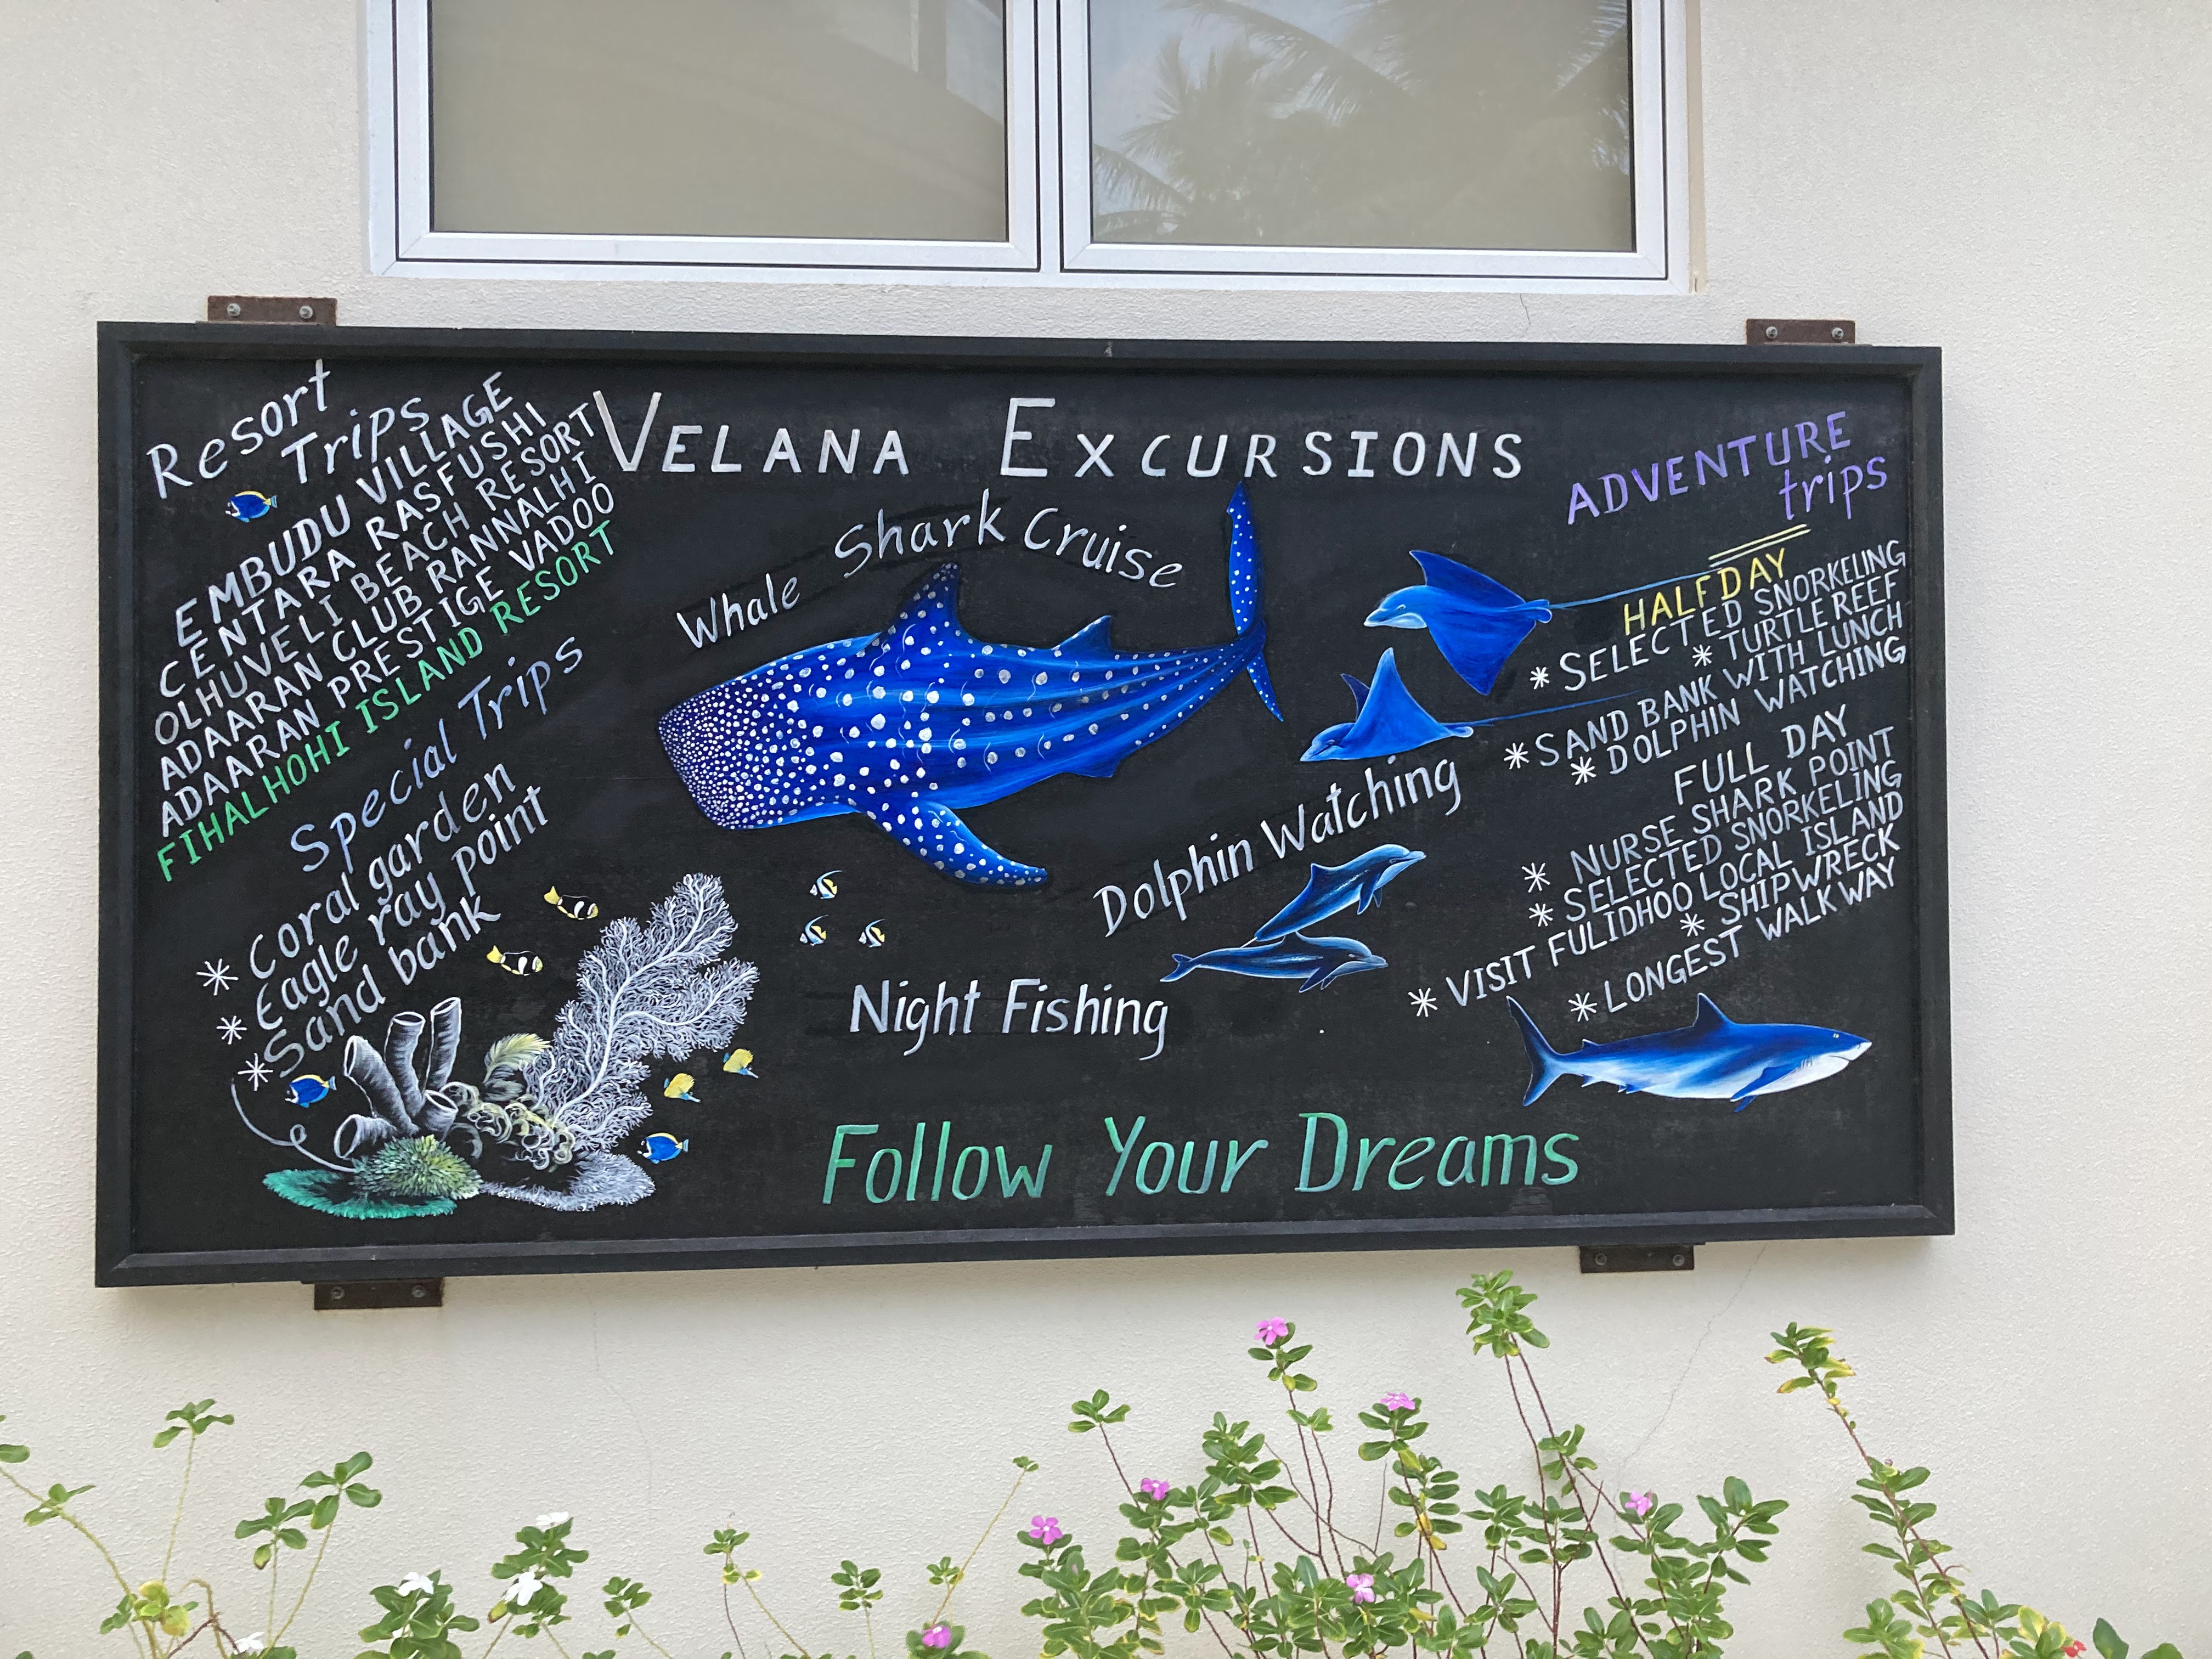 VELANA EXCURSIONS
Resort
Trips
EMBUDU VILLAGE
CENTARA RASFUSHI
OLHUVELI BEACH RESORT
ADAARAN CLUB RANNALHI
ADAARAN PRESTIGE VADOO
FIHALHOHI ISLAND RESORT
Special Trips
* Coral garden
* Eagle ray point
* Sand bank
Whale Shark Cruise
Dolphin Watching
Night Fishing
Follow Your Dreams
ADVENTURE
trips
HALF DAY
* SELECTED SNORKELING
* TURTLE REEF
* SAND BANK WITH LUNCH
* DOLPHIN WATCHING
FULL DAY
* NURSE SHARK POINT
* SELECTED SNORKELING
* VISIT FULIDHOO LOCAL ISLAND
* SHIPWRECK
* LONGEST WALKWAY